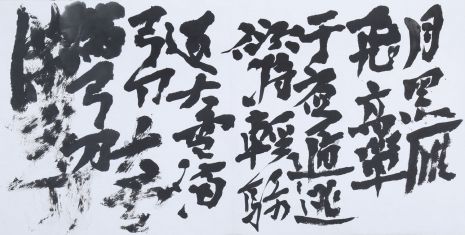 月黑雁
飛高單
于夜遁逃
欲將輕騎
逐大雪滿
弓刀大雪
滿弓刀